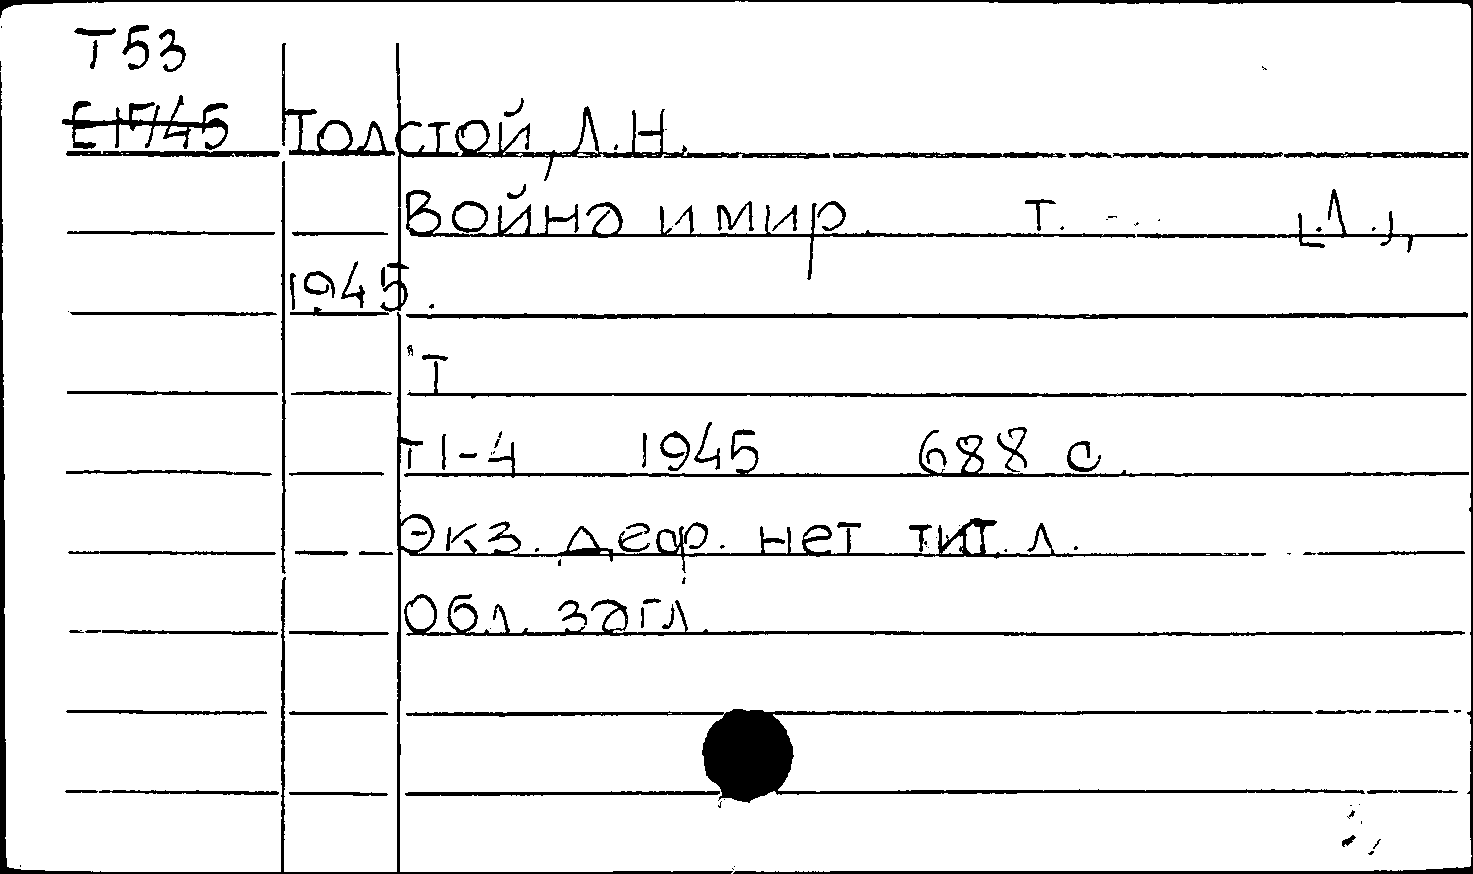 Т53
Е1545 Толстой, Л.Н.
Война и мир. т. [Л.],
1945.
Т
т1-4 1945 688 с.
Экз. деф. нет тит. л.
Обл. загл.